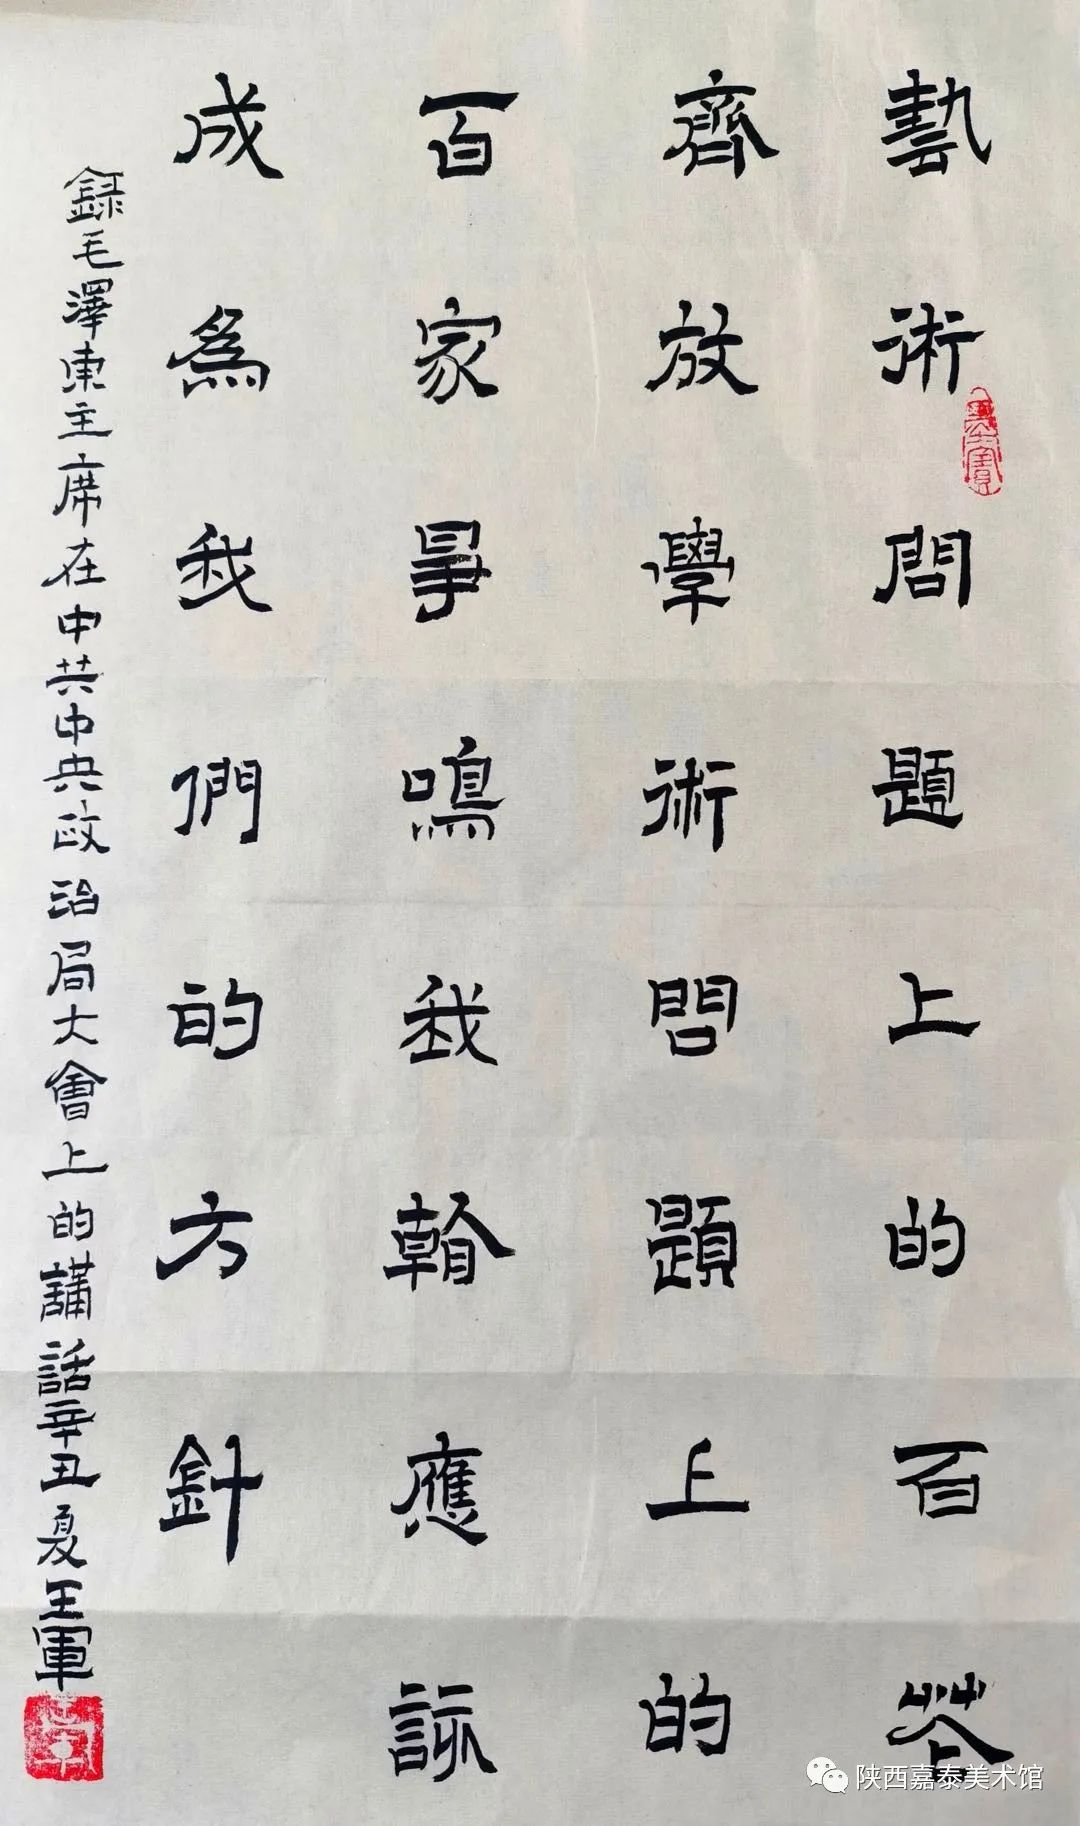 藝術問題上的百花
齊放學術問題上的
百家爭鳴我看應該
成爲我們的方針
録毛澤東主席在中共中央政治局大會上的講話辛丑夏王軍
陕西嘉泰美术馆